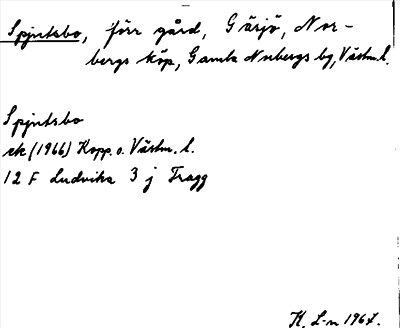 Spjutsbo, förr gård, Gäsjö, Nor-
bergs köp, Gamla Norbergs bg, Västm.l.
Spjutsbo
ek (1966) Kopp. o. Västm. l.
12 F Ludvika 3 j Fragg
K. L-n 1967.